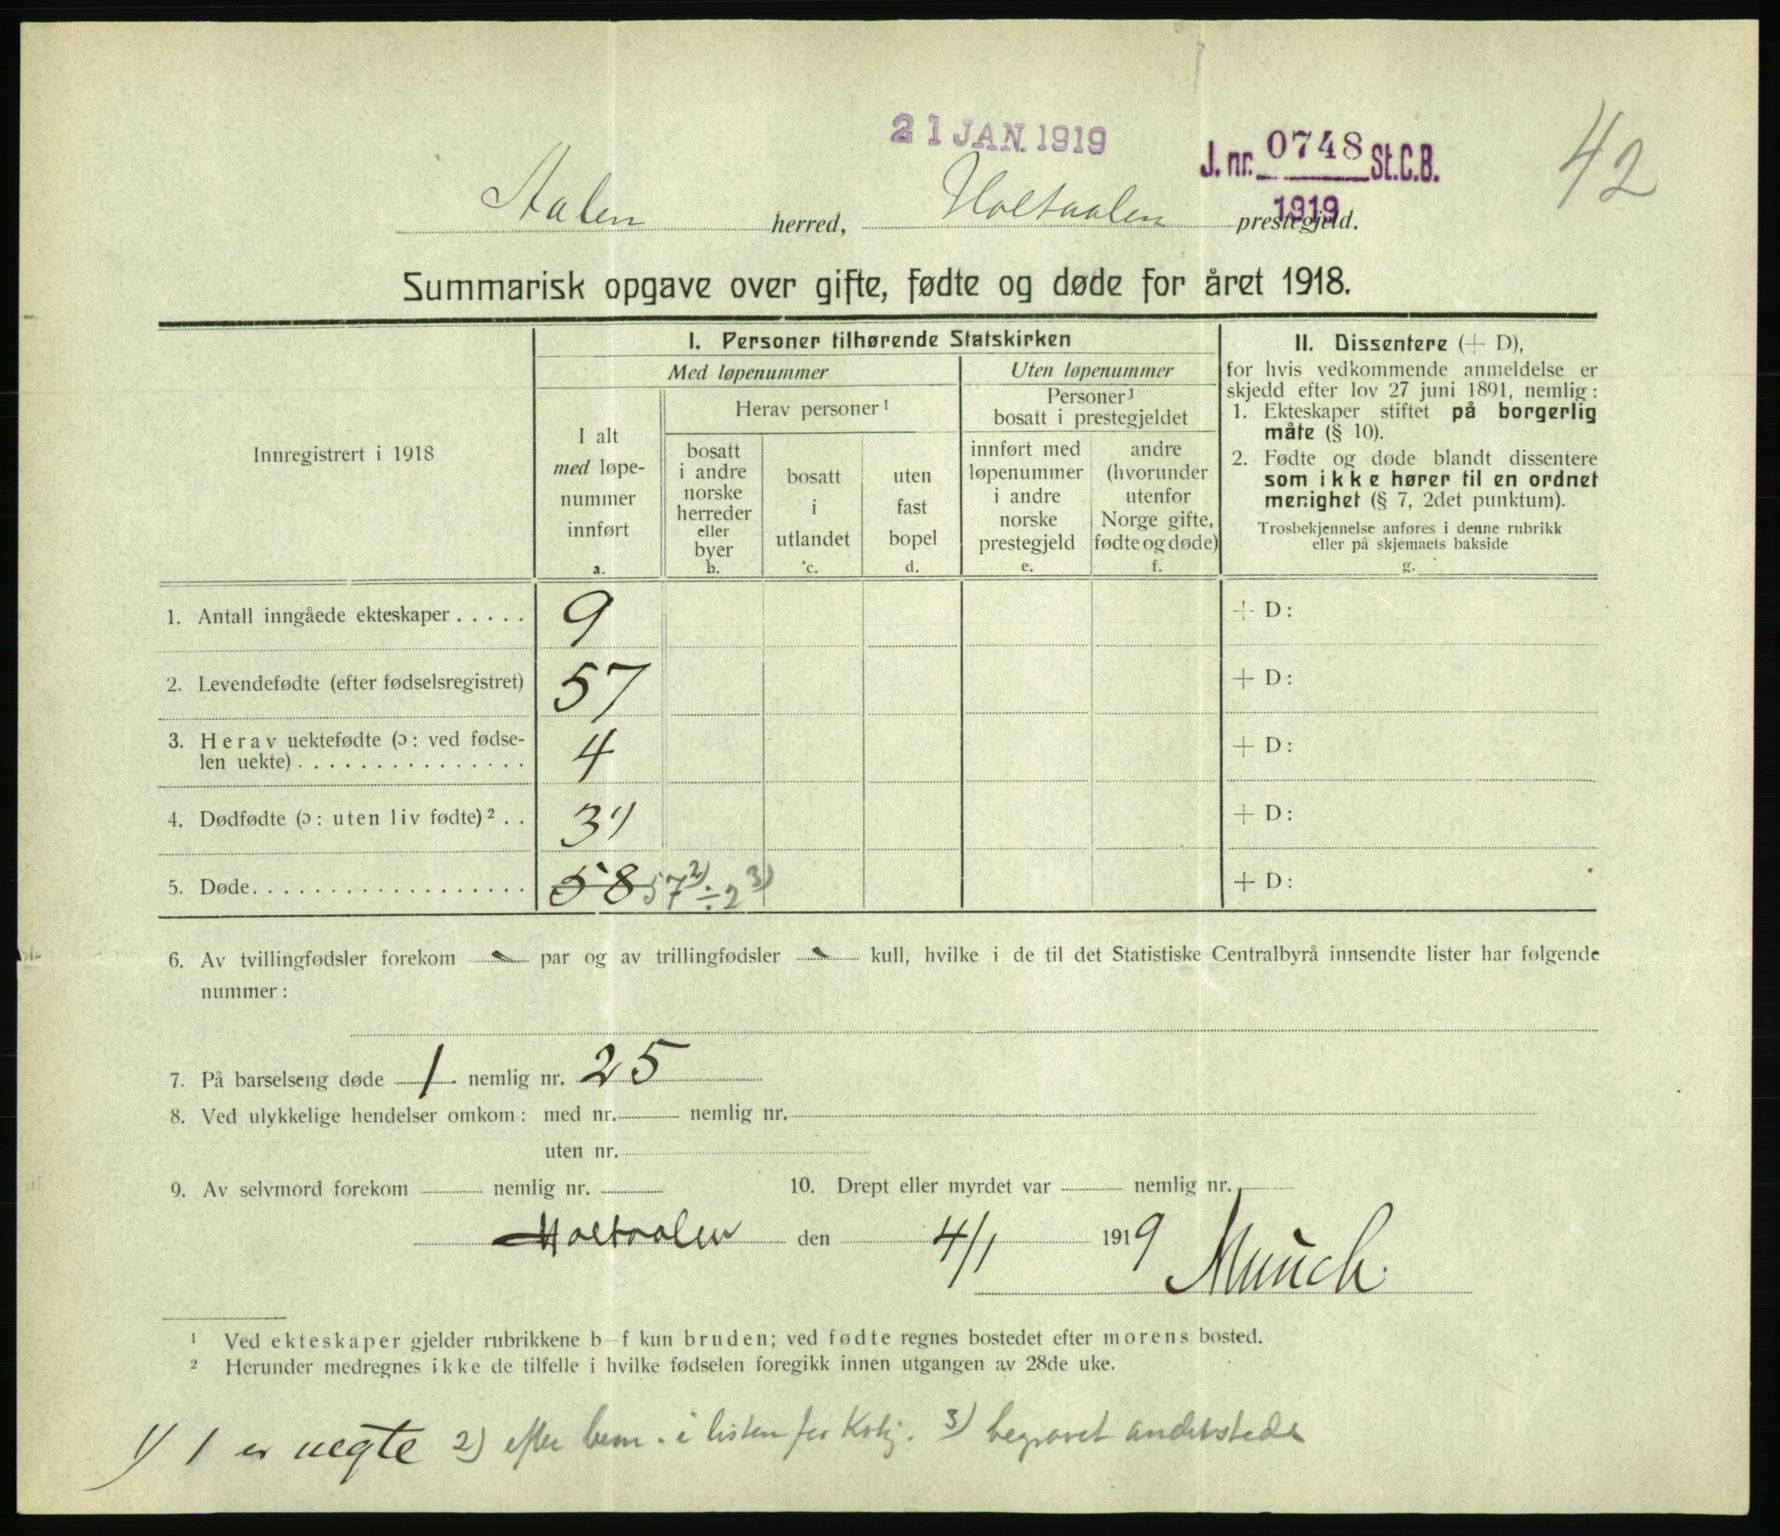 21 JAN. 1919
J. nr. 0748 St.C.B.
1919
42
Aalen herred, Holtaalen prestegjeld.
Summarisk opgave over gifte, fødte og døde for året 1918.
Innregistrert i 1918
I. Personer tilhørende Statskirken
Med løpenummer
Uten løpenummer
I alt
med løpe-
nummer
innført
a.
Herav personer ¹
bosatt
i andre
norske
herreder
eller
byer
b.
bosatt
i
utlandet
c.
uten
fast
bopel
d.
Personer ¹
bosatt i prestegjeldet
innført med
løpenummer
i andre
norske
prestegjeld
e.
andre
(hvorunder
utenfor
Norge gifte,
fødte og døde)
f.
II. Dissentere (+ D),
for hvis vedkommende anmeldelse er
skjedd efter lov 27 juni 1891, nemlig:
1. Ekteskaper stiftet på borgerlig
måte (§ 10).
2. Fødte og døde blandt dissentere
som ikke hører til en ordnet
menighet (§ 7, 2det punktum).
Trosbekjennelse anføres i denne rubrikk
eller på skjemaets bakside
g.
1. Antall inngåede ekteskaper ..... 9 + D:
2. Levendefødte (efter fødselsregistret) 57 + D:
3. Herav uektefødte (ɔ: ved fødse-
len uekte) ............... 4 + D:
4. Dødfødte (ɔ: uten liv fødte) ² .. 3 1) + D:
5. Døde .................. 58 57 2) ÷ 2 3) + D:
6. Av tvillingfødsler forekom - par og av trillingfødsler - kull, hvilke i de til det Statistiske Centralbyrå innsendte lister har følgende
nummer:
7. På barselseng døde 1 nemlig nr. 25
8. Ved ulykkelige hendelser omkom: med nr. nemlig nr.
uten nr.
9. Av selvmord forekom nemlig nr. 10. Drept eller myrdet var nemlig nr.
Holtaalen den 4/1 1919 Munch
¹ Ved ekteskaper gjelder rubrikkene b—f kun bruden; ved fødte regnes bostedet efter morens bosted.
² Herunder medregnes ikke de tilfelle i hvilke fødselen foregikk innen utgangen av 28de uke.
1) 1 er uegte 2) efter bem. i listen for 3) begravet andetsteds